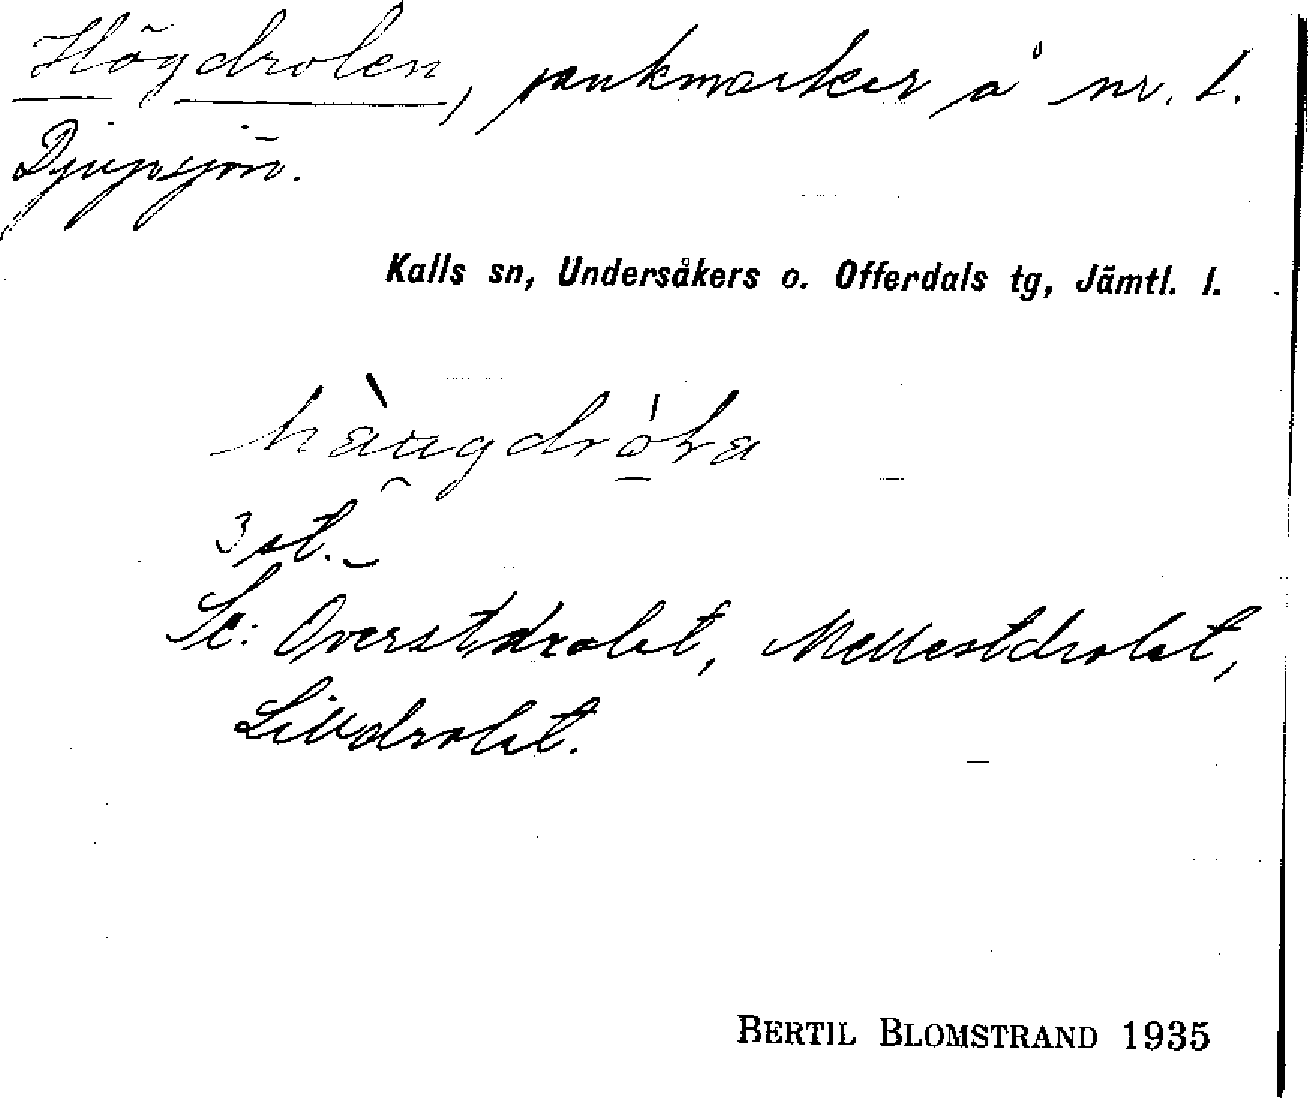 Högdrolen, sankmarker å nr. 1.
Djupsjön.
Kalls sn, Undersåkers o. Offerdals tg, Jämtl. l.
3 st.
Se: Överstdrolet, Mellestdrolet,
Lilldrolet.
BERTIL BLOMSTRAND 1935